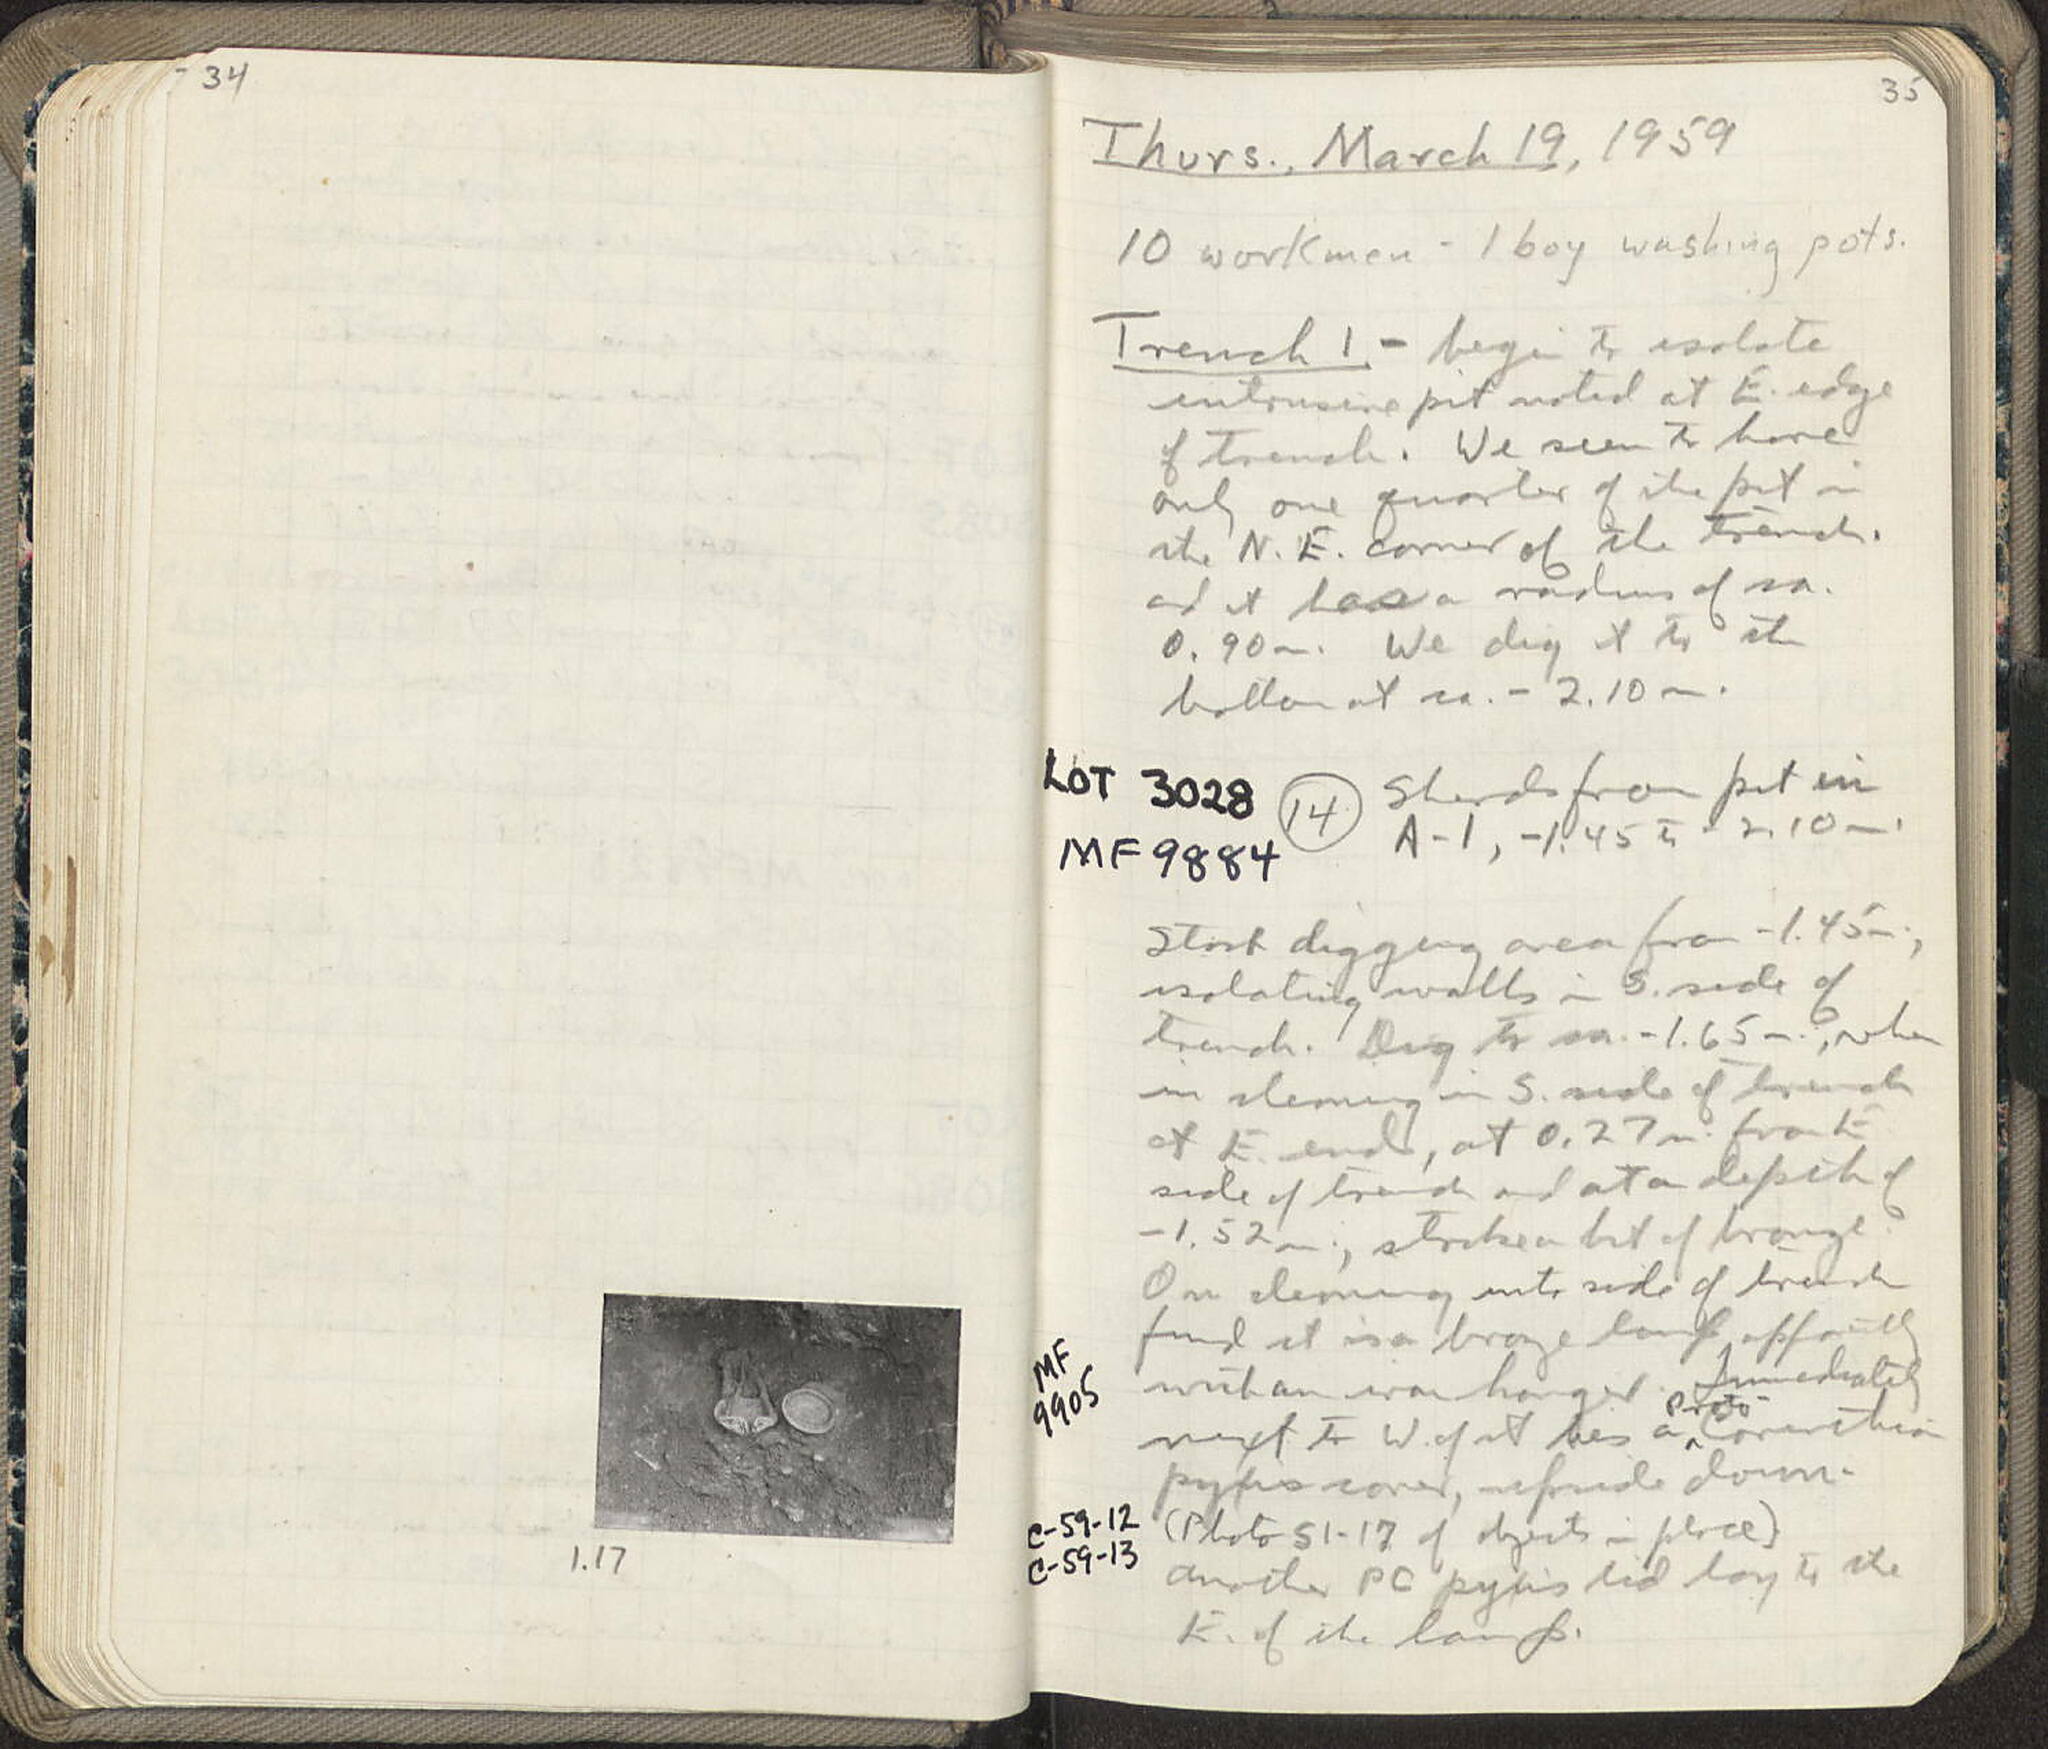 34
1.17
35
Thurs., March 19, 1959
10 workmen - 1 boy washing pots.
Trench 1 - begin to isolate
intrusive pit noted at E. edge
of trench. We seem to have
only one quarter of the pit in
the N.E. corner of the trench.
and it has a radius of ca.
0.90 m. We dig it to the
bottom at ca. - 2.10 m.
LOT 3028 (14) Sherds from pit in
MF 9884 A-1, -1.45 to -2.10 m.
Start digging area from -1.45 m.,
isolating walls in S. side of
trench. Dig to ca. -1.65 m., when
in cleaning in S. side of trench
at E. end, at 0.27 m. from E.
side of trench and at a depth of
-1.52 m., strike a bit of bronze.
On cleaning into side of trench
find it is a bronze lamp, apparently
MF with an iron hanger. Immediately
9905 next to W. of it lies a Proto-Corinthian
pyxis cover, upside down.
C-59-12 (Photo S1-17 of objects in place)
C-59-13 Another PC pyxis lid lay to the
E. of the lamp.